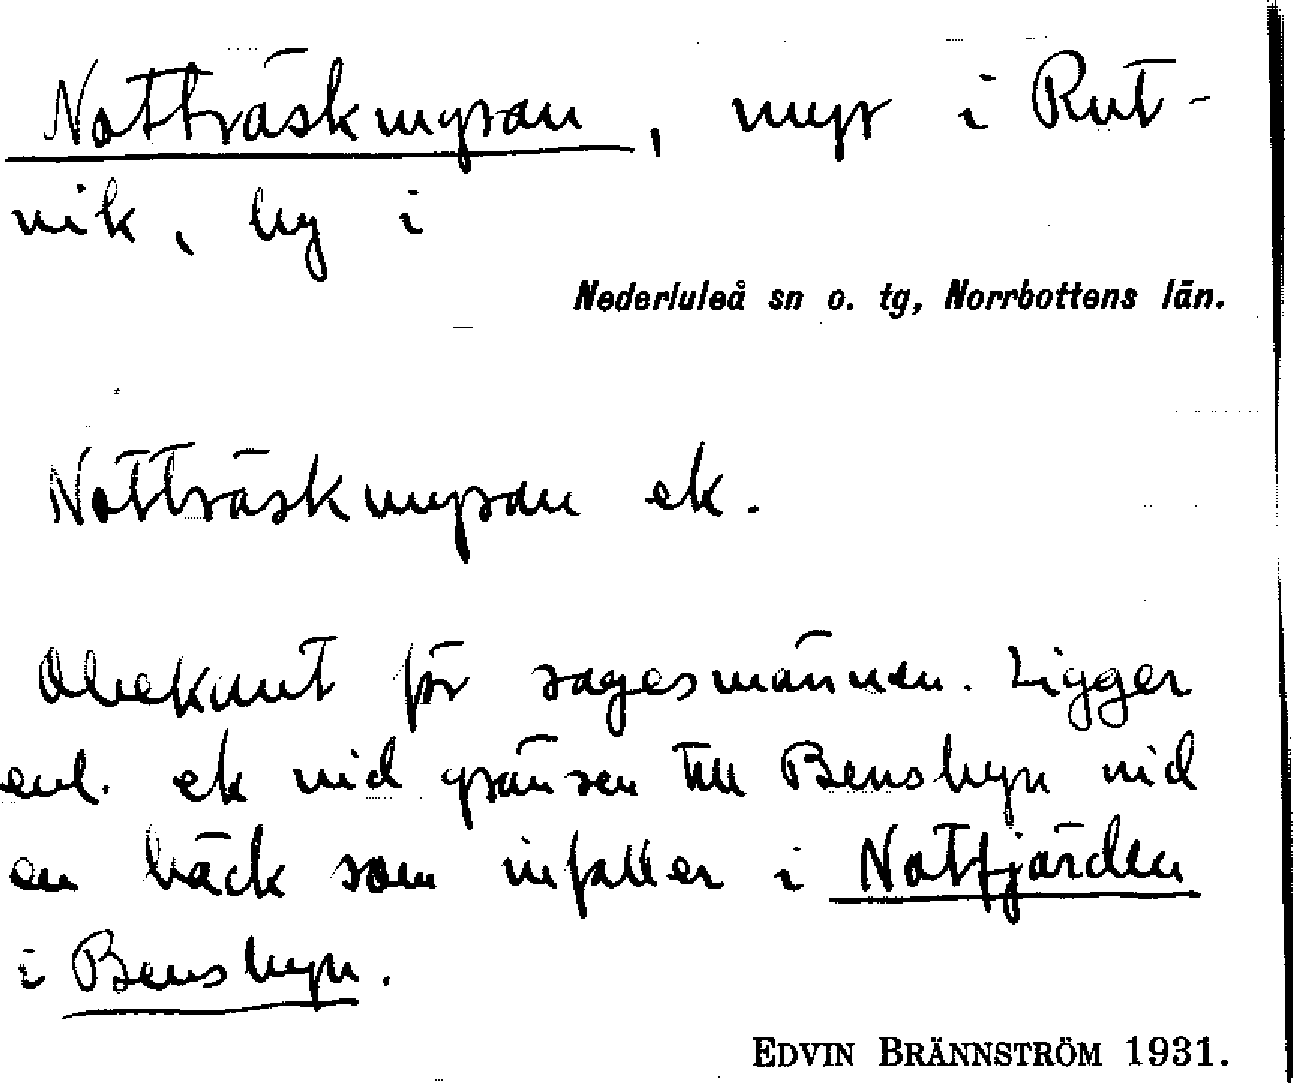 Notträskmyran, myr i Rut-
vik, by i
Nederluleå sn o. tg, Norrbottens län.
Notträskmyran ek.
Obekant för sagesmännen. Ligger
enl. ek vid gränsen till Bensbyn vid
en bäck som infaller i Notfjärden
i Bensbyn.
EDVIN BRÄNNSTRÖM 1931.